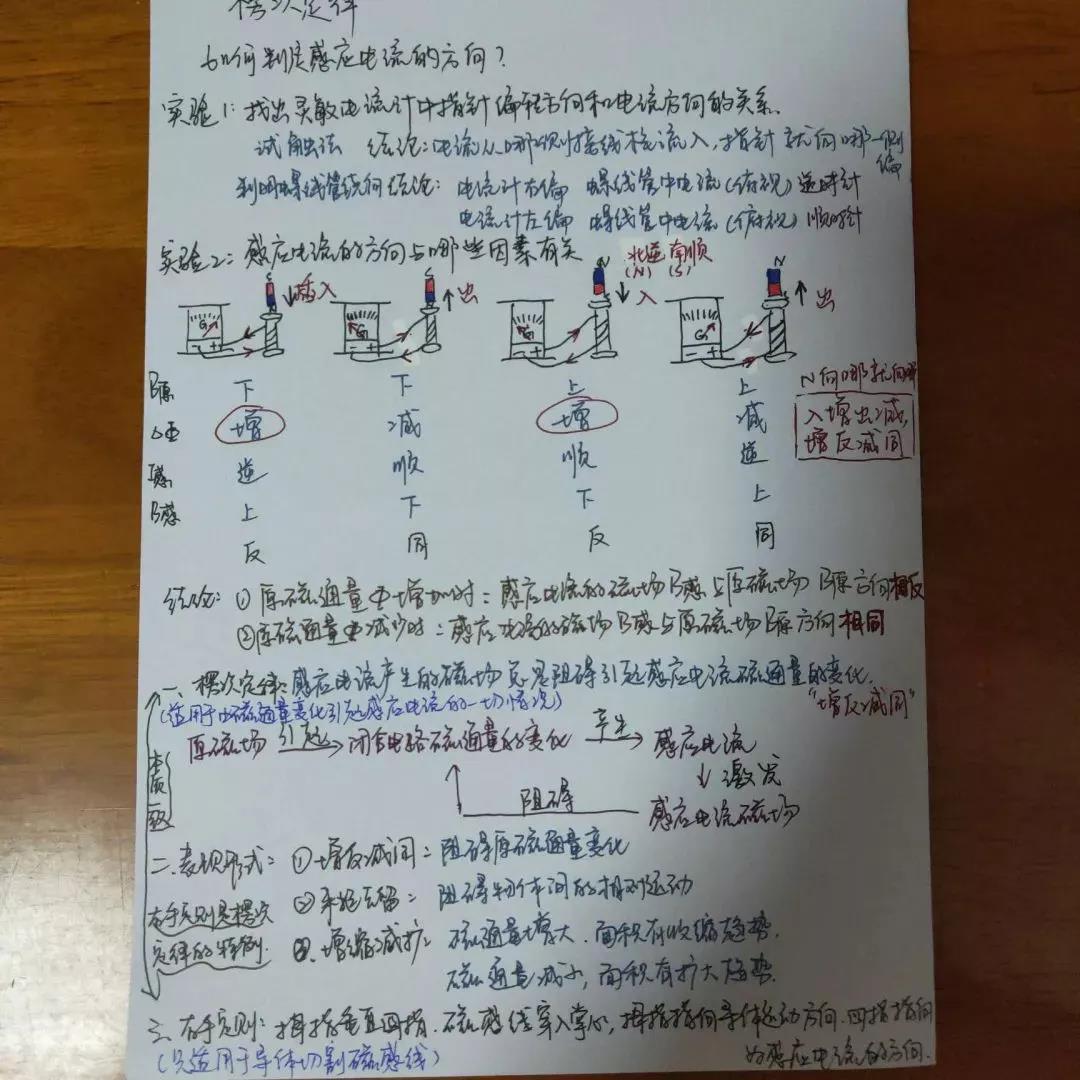 楞次定律
如何判定感应电流的方向?
实验1:找出灵敏电流计中指针偏转方向和电流方向的关系.
试触法 结论:电流从哪侧接线柱流入,指针就向哪一侧偏
利用螺线管绕向结论: 电流计右偏 螺线管中电流(俯视)逆时针
电流计左偏 螺线管中电流(俯视)顺时针
实验2:感应电流的方向与哪些因素有关
北逆南顺
(N) (S)
S ↓插入 S ↑出 N ↓入 N ↑出
G G G G
- + - + - + - +
B原 下 下 上 上
N向哪就向哪
ΔΦ 增 减 增 减
入增出减,
增反减同
I感 逆 顺 顺 逆
B感 上 下 下 上
反 同 反 同
结论:①原磁通量Φ增加时:感应电流的磁场B感与原磁场B原方向相反
②原磁通量Φ减少时:感应电流的磁场B感与原磁场B原方向相同
一、楞次定律:感应电流产生的磁场总是阻碍引起感应电流磁通量的变化.
(适用于由磁通量变化引起感应电流的一切情况)
"增反减同"
原磁场 引起→ 闭合电路磁通量的变化 产生→ 感应电流
↓激发
阻碍 感应电流磁场
本质一致
二.表现形式:①增反减同:阻碍原磁通量变化
②来拒去留: 阻碍物体间的相对运动
右手定则是楞次
定律的特例.
③.增缩减扩: 磁通量增大.面积有收缩趋势.
磁通量减小,面积有扩大趋势.
三、右手定则:拇指垂直四指.磁感线穿入掌心,拇指指向导体运动方向.四指指向
为感应电流的方向.
(只适用于导体切割磁感线)